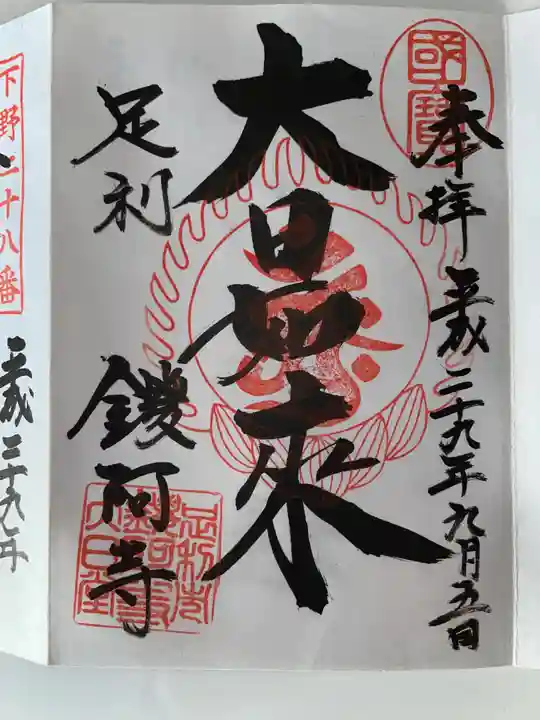 國寶
奉拝 平成二十九年九月五日
大日如来
足利 鑁阿寺
下野二十八番
平成二十九年